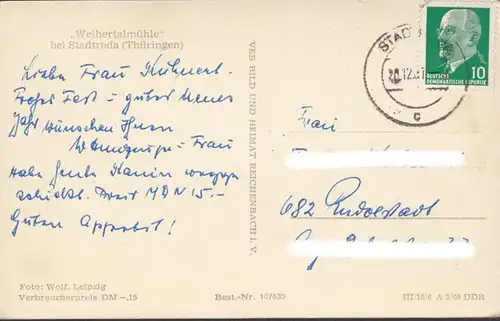 „Weihertalmühle"
bei Stadtroda (Thüringen)
Liebe Frau Kühnert.
Frohes Fest = gutes Neues
Jahr wünschen Ihnen
= Frau
Habe heute Kanin
schickt. Preis MDN 15.-
Guten Appetit!
VEB BILD UND HEIMAT REICHENBACH i. V.
STADT
c
DEUTSCHE
DEMOKRATISCHE REPUBLIK
10
Frau
682 Rudolstadt
Foto: Wolf, Leipzig
Verbraucherpreis DM –,15
Best.-Nr. 10/635
III/18/6 A 3/60 DDR